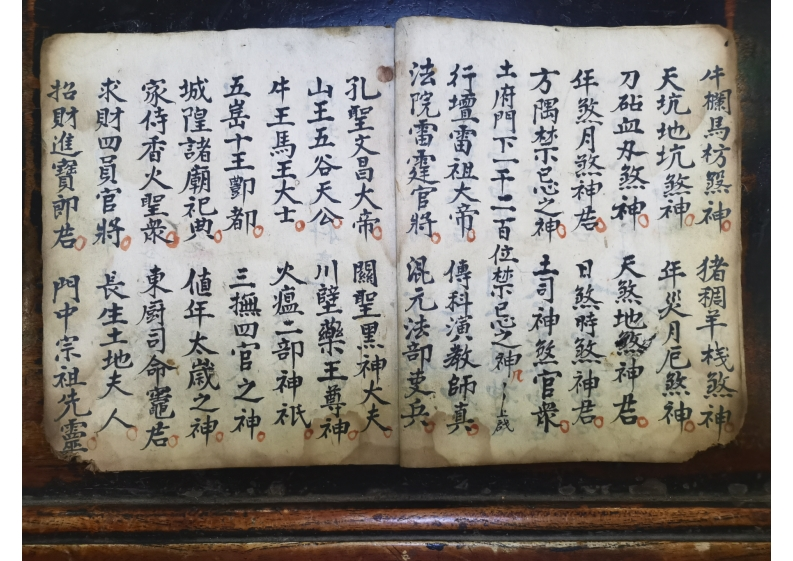 牛欄馬枋煞神 猪稠羊棧煞神
天坑地坑煞神 年災月厄煞神
刀砧血刃煞神 天煞地煞神君
年煞月煞神君 日煞時煞神君
方隅禁忌之神 土司神煞官衆
土府門下一千二百位禁忌之神
行壇雷祖大帝 傳科演教師真
法院雷霆官將 混元法部吏兵
孔聖文昌大帝 關聖黑神大夫
山王五谷天公 川壁藥王尊神
牛王馬王大士 火瘟二部神祇
五嵓十王酆都 三撫四官之神
城隍諸廟祀典 値年太歲之神
家侍香火聖衆 東厨司命竈君
求財四員官將 長生土地夫人
招財進寶郎君 門中宗祖先靈